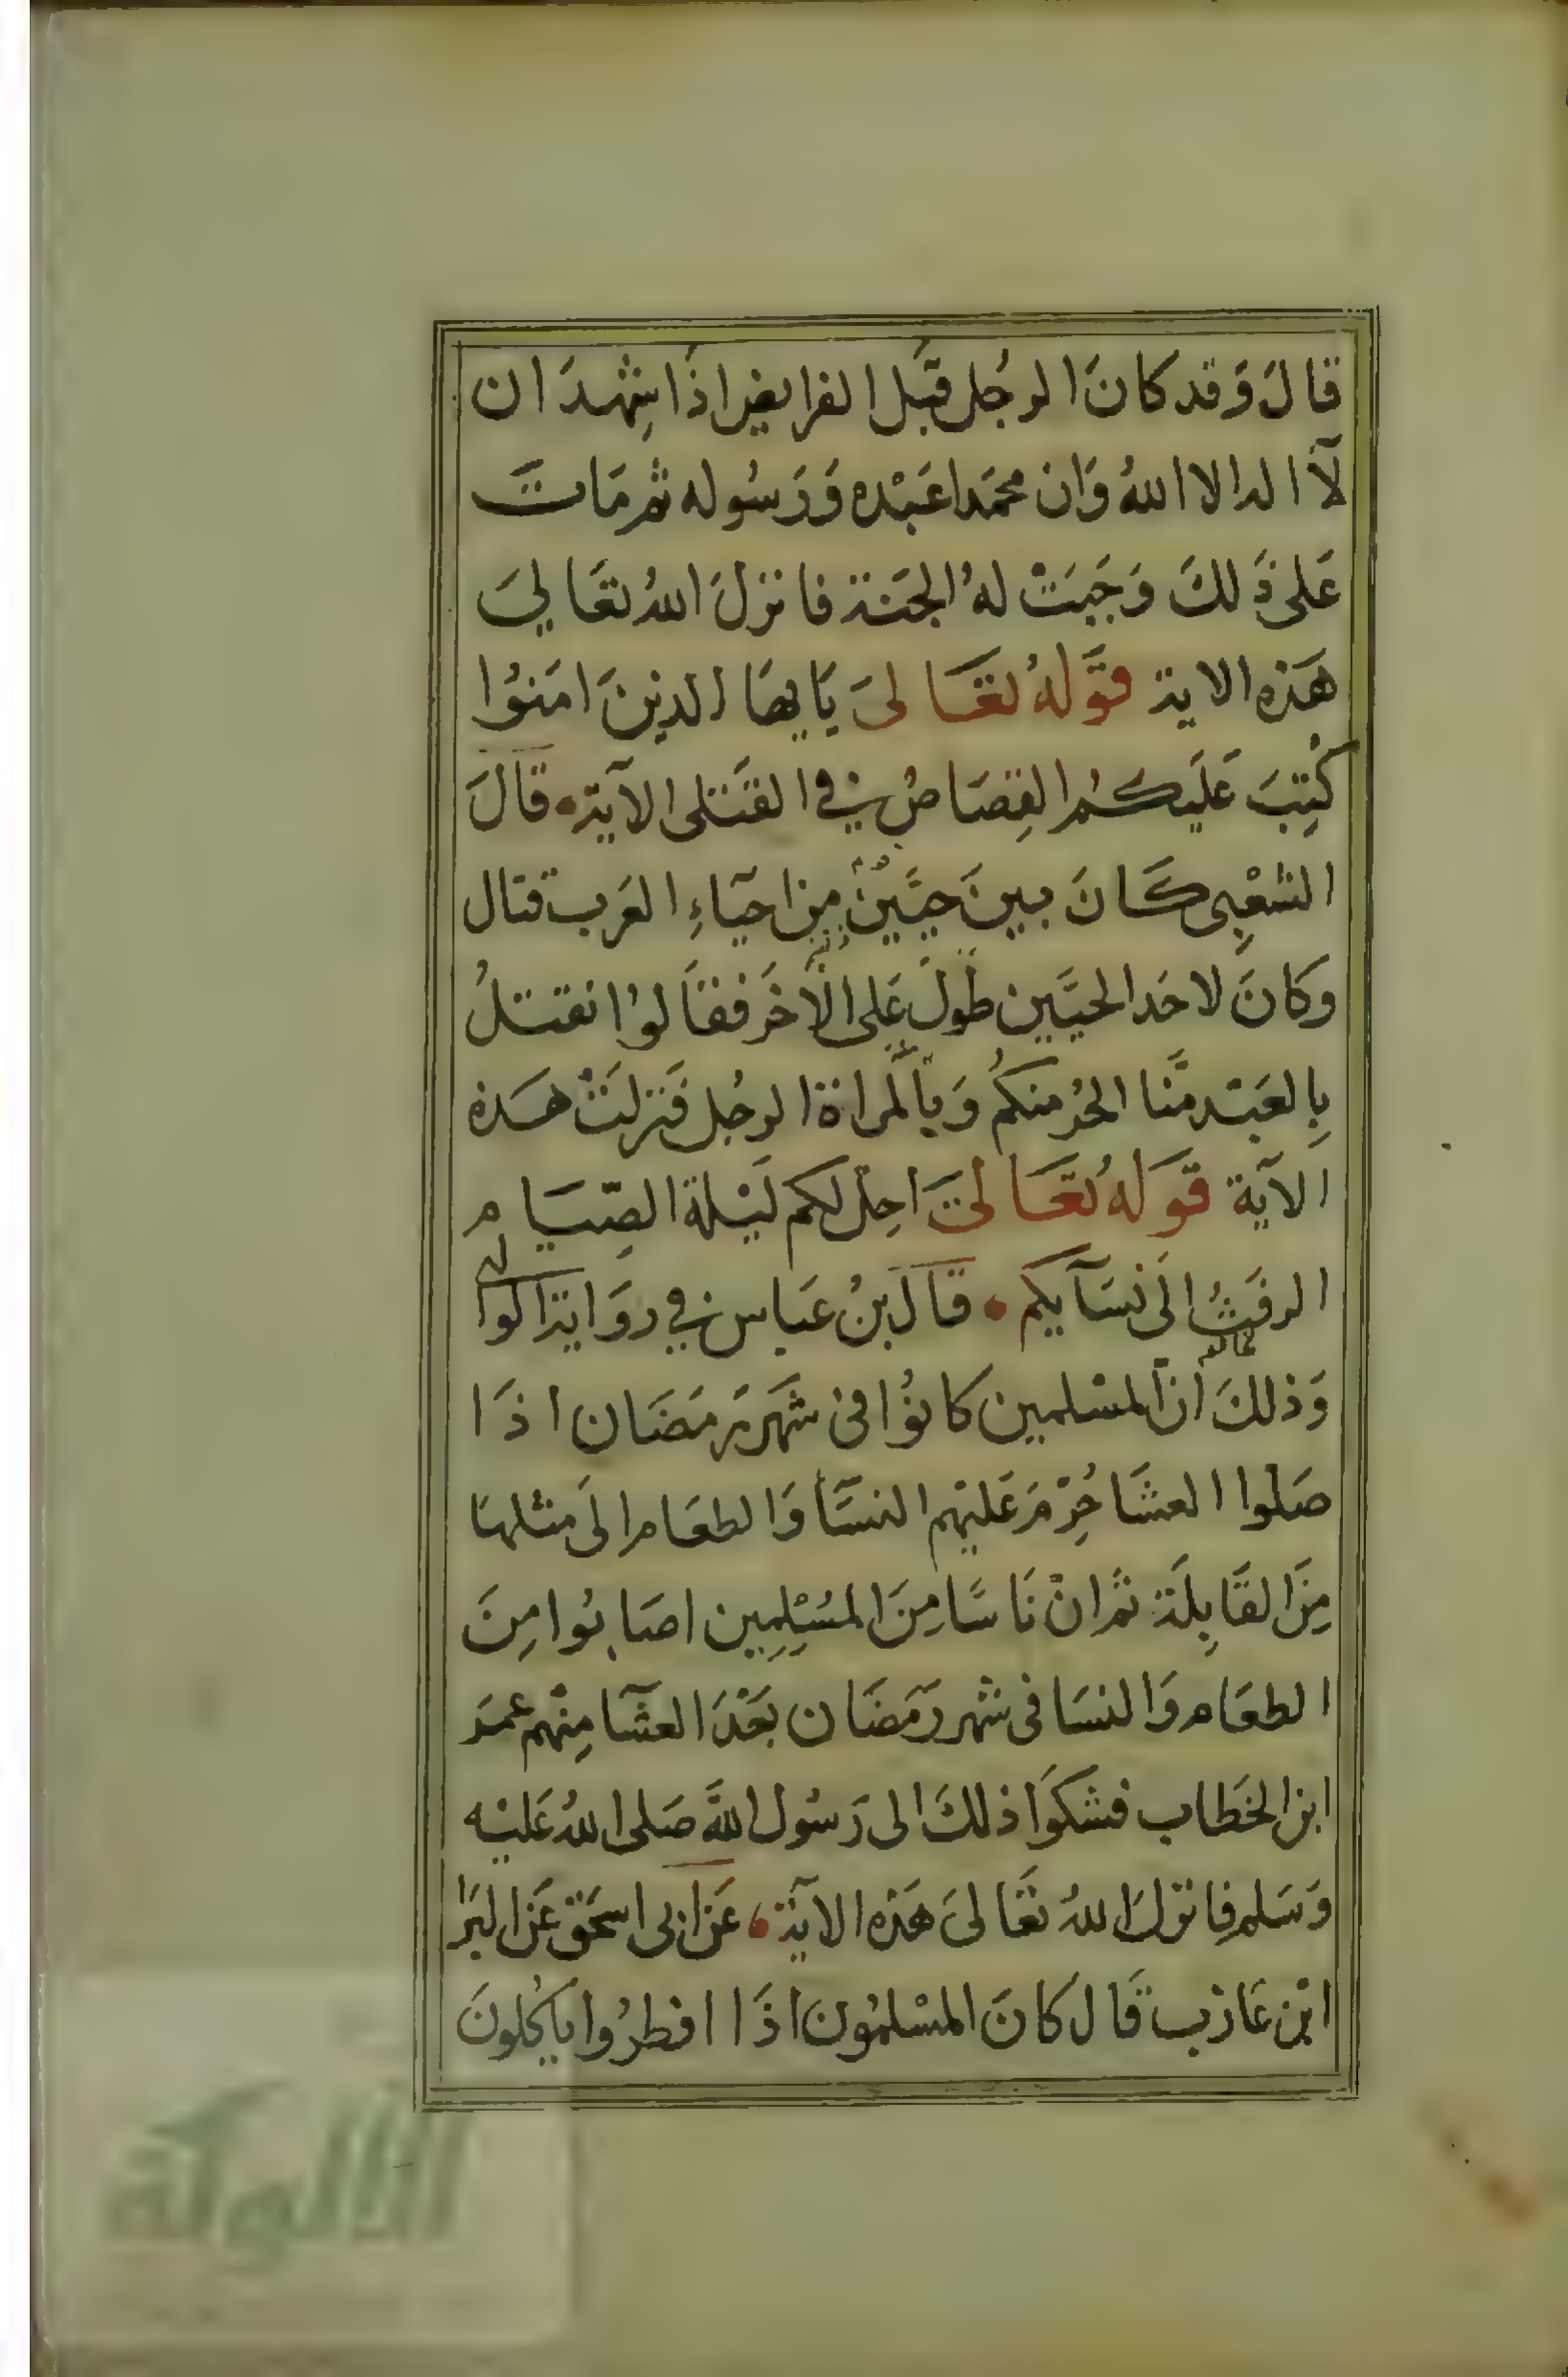 قَالَ وَقد كانَ الرجُل قبَل الفرايض اذَا شِهدَ ان
لآ اله الا اللهُ وَان محمَدا عَبْده وَرَسُوله ثم مَات
عَلى ذَلكَ وَجَبَتْ لهُ الجَنة فانزلَ اللهُ تعَالىَ
هَذه الاية قوَلهُ تعَالىَ يَا يهَا الذينَ امَنوُا
كُتِبَ عَلَيكُم القِصَاصُ في القَتلى الآية قَالَ
الشعْبِى كَانَ بينَ حيَّينْ مِن احيَاءِ العَرب قتال
وكانَ لاحَد الحيَّين طَولَ عَلى الآخَر فقاَلوُا نقتلُ
بِالعَبَد مَّنا الحُر منكمُ وَبالمراة الرجُل فَنزلَتْ هَذه
الآية قوَلهُ تعَالىَ احِل لكم لَيْلة الصِّيَام
الرفَثُ الىَ نسَآيكم قاَل بنُ عَباس في روَاية الوالبي
وَذلكَ أنَّ المسْلمين كانوُا فى شَهَر رَمَضَان اذَا
صَلوا العشَا حُرِّمَ عَليْهم النسَّآ وَالطعَام الىَ مثلهَا
مِنَ القَابِلَة ثمَ انْ نَاسًا مِنَ المُسْلِمِين اصَابوُا مِنَ
الطعَام وَالنسَا فى شهر رَمَضَان بَعْدَ العشَآ مِنْهم عمَر
ابن الخَطاب فشكوَا ذلكَ الى رَسُول اللهَّ صَلى اللهُ عَليْه
وَسَلم فانزلَ اللهُ تعَالىَ هَذه الآية عَن ابى اسحَق عَن البَرا
ابْن عَازب قَال كَانَ المسْلمُونَ اذَا افطرُوا ياَكُلونَ
الألوكة